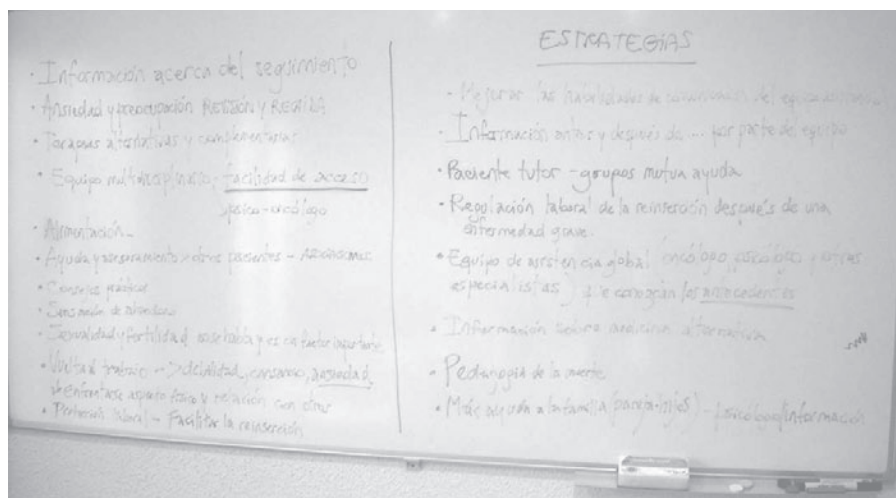 · Información acerca del seguimiento
· Ansiedad y preocupación REVISIÓN Y RECAIDA
· Terapias alternativas y complementarias
· Equipo multidisciplinario - facilidad de acceso
psico-oncólogo
· Alimentación -
· Ayuda y asesoramiento otros pacientes - ASOCIACIONES
· Consejos prácticos
· Sensación de abandono
· Sexualidad y fertilidad no se habla y es un factor importante
· Vuelta al trabajo -> debilidad, cansancio, ansiedad,
enfrentarse aspecto físico y relación con otros
· Protección laboral - Facilitar la reinserción
ESTRATEGIAS
· Mejorar las habilidades de comunicación del equipo
· Información antes y después de ... por parte del equipo
· Paciente tutor - grupos mutua ayuda
· Regulación laboral de la reinserción después de una
enfermedad grave.
· Equipo de asistencia global (oncólogo, psicólogo y otras
especialistas) que conozcan los antecedentes
· Información sobre medicina alternativa
· Pedagogía de la muerte
· Más atención a la familia (pareja-hijos) - psicólogo/información